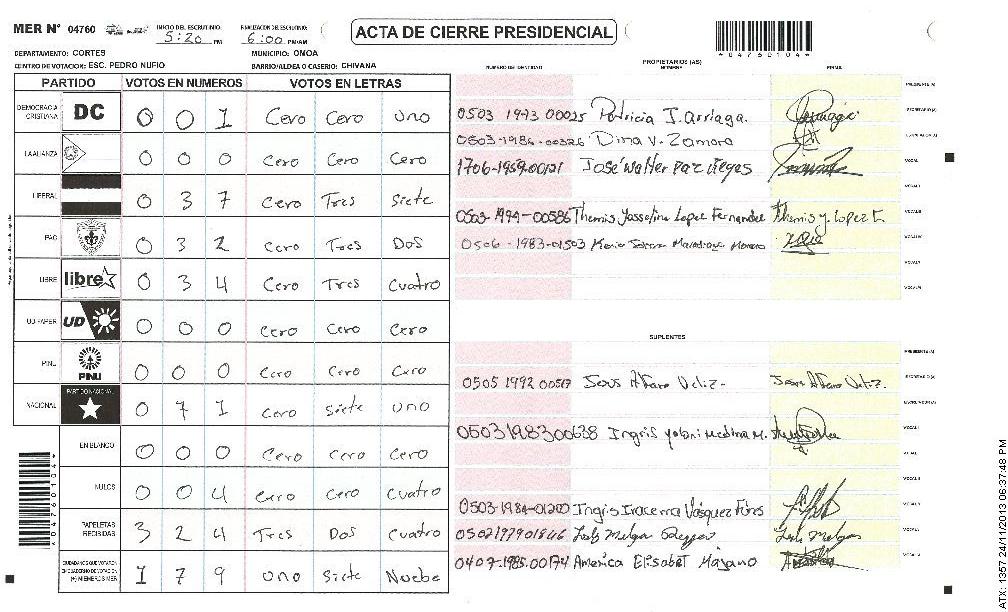 MER N° 04760 INICIO DEL ESCRUTINIO: 5:20 PM FINALIZACION DEL ESCRUTINIO: 6:00 PM/AM
ACTA DE CIERRE PRESIDENCIAL
04760104
DEPARTAMENTO: CORTES MUNICIPIO: OMOA
CENTRO DE VOTACION: ESC. PEDRO NUFIO BARRIO/ALDEA O CASERIO: CHIVANA
PARTIDO VOTOS EN NUMEROS VOTOS EN LETRAS
DEMOCRACIA CRISTIANA DC 0 0 1 Cero Cero uno
LA ALIANZA 0 0 0 Cero Cero Cero
LIBERAL 0 3 7 Cero Tres Siete
PAC 0 3 2 Cero Tres Dos
LIBRE libre 0 3 4 Cero Tres Cuatro
UD-FAPER UD 0 0 0 Cero Cero Cero
PINU PINU 0 0 0 Cero Cero Cero
NACIONAL PARTIDO NACIONAL 0 7 1 Cero Siete uno
EN BLANCO 0 0 0 Cero Cero Cero
NULOS 0 0 4 Cero Cero Cuatro
PAPELETAS RECIBIDAS 3 2 4 Tres Dos Cuatro
CIUDADANOS QUE VOTARON EN CUADERNO DE VOTACION (+) MIEMBROS MER 1 7 9 uno Siete Nuebe
04760104
PROPIETARIOS (AS)
NUMERO DE IDENTIDAD NOMBRE FIRMA
PRESIDENTE (A)
0503 1973 00025 Patricia J. arriaga.
SECRETARIO (A)
0503-1986-00326 Dina V. Zamora
ESCRUTADOR (A)
1706-1959-00121 José Walter Paz
VOCAL I
VOCAL II
0503-1994-00586 Themis Yosselin Lopez Fernandez Themis Y. Lopez F.
VOCAL III
0506-1983-01503 Maria
VOCAL IV
VOCAL V
SUPLENTES
PRESIDENTE (A)
0505 1992 00517
SECRETARIO (A)
ESCRUTADOR (A)
0503198300638 Ingris yolani medina M.
VOCAL I
VOCAL II
0503-1984-01200 Ingris Iracema Vásquez
0502197901846 Lesly Melgar
0407-1985-00174 America Elisabet
ATX: 1357 24/11/2013 06:37:48 PM